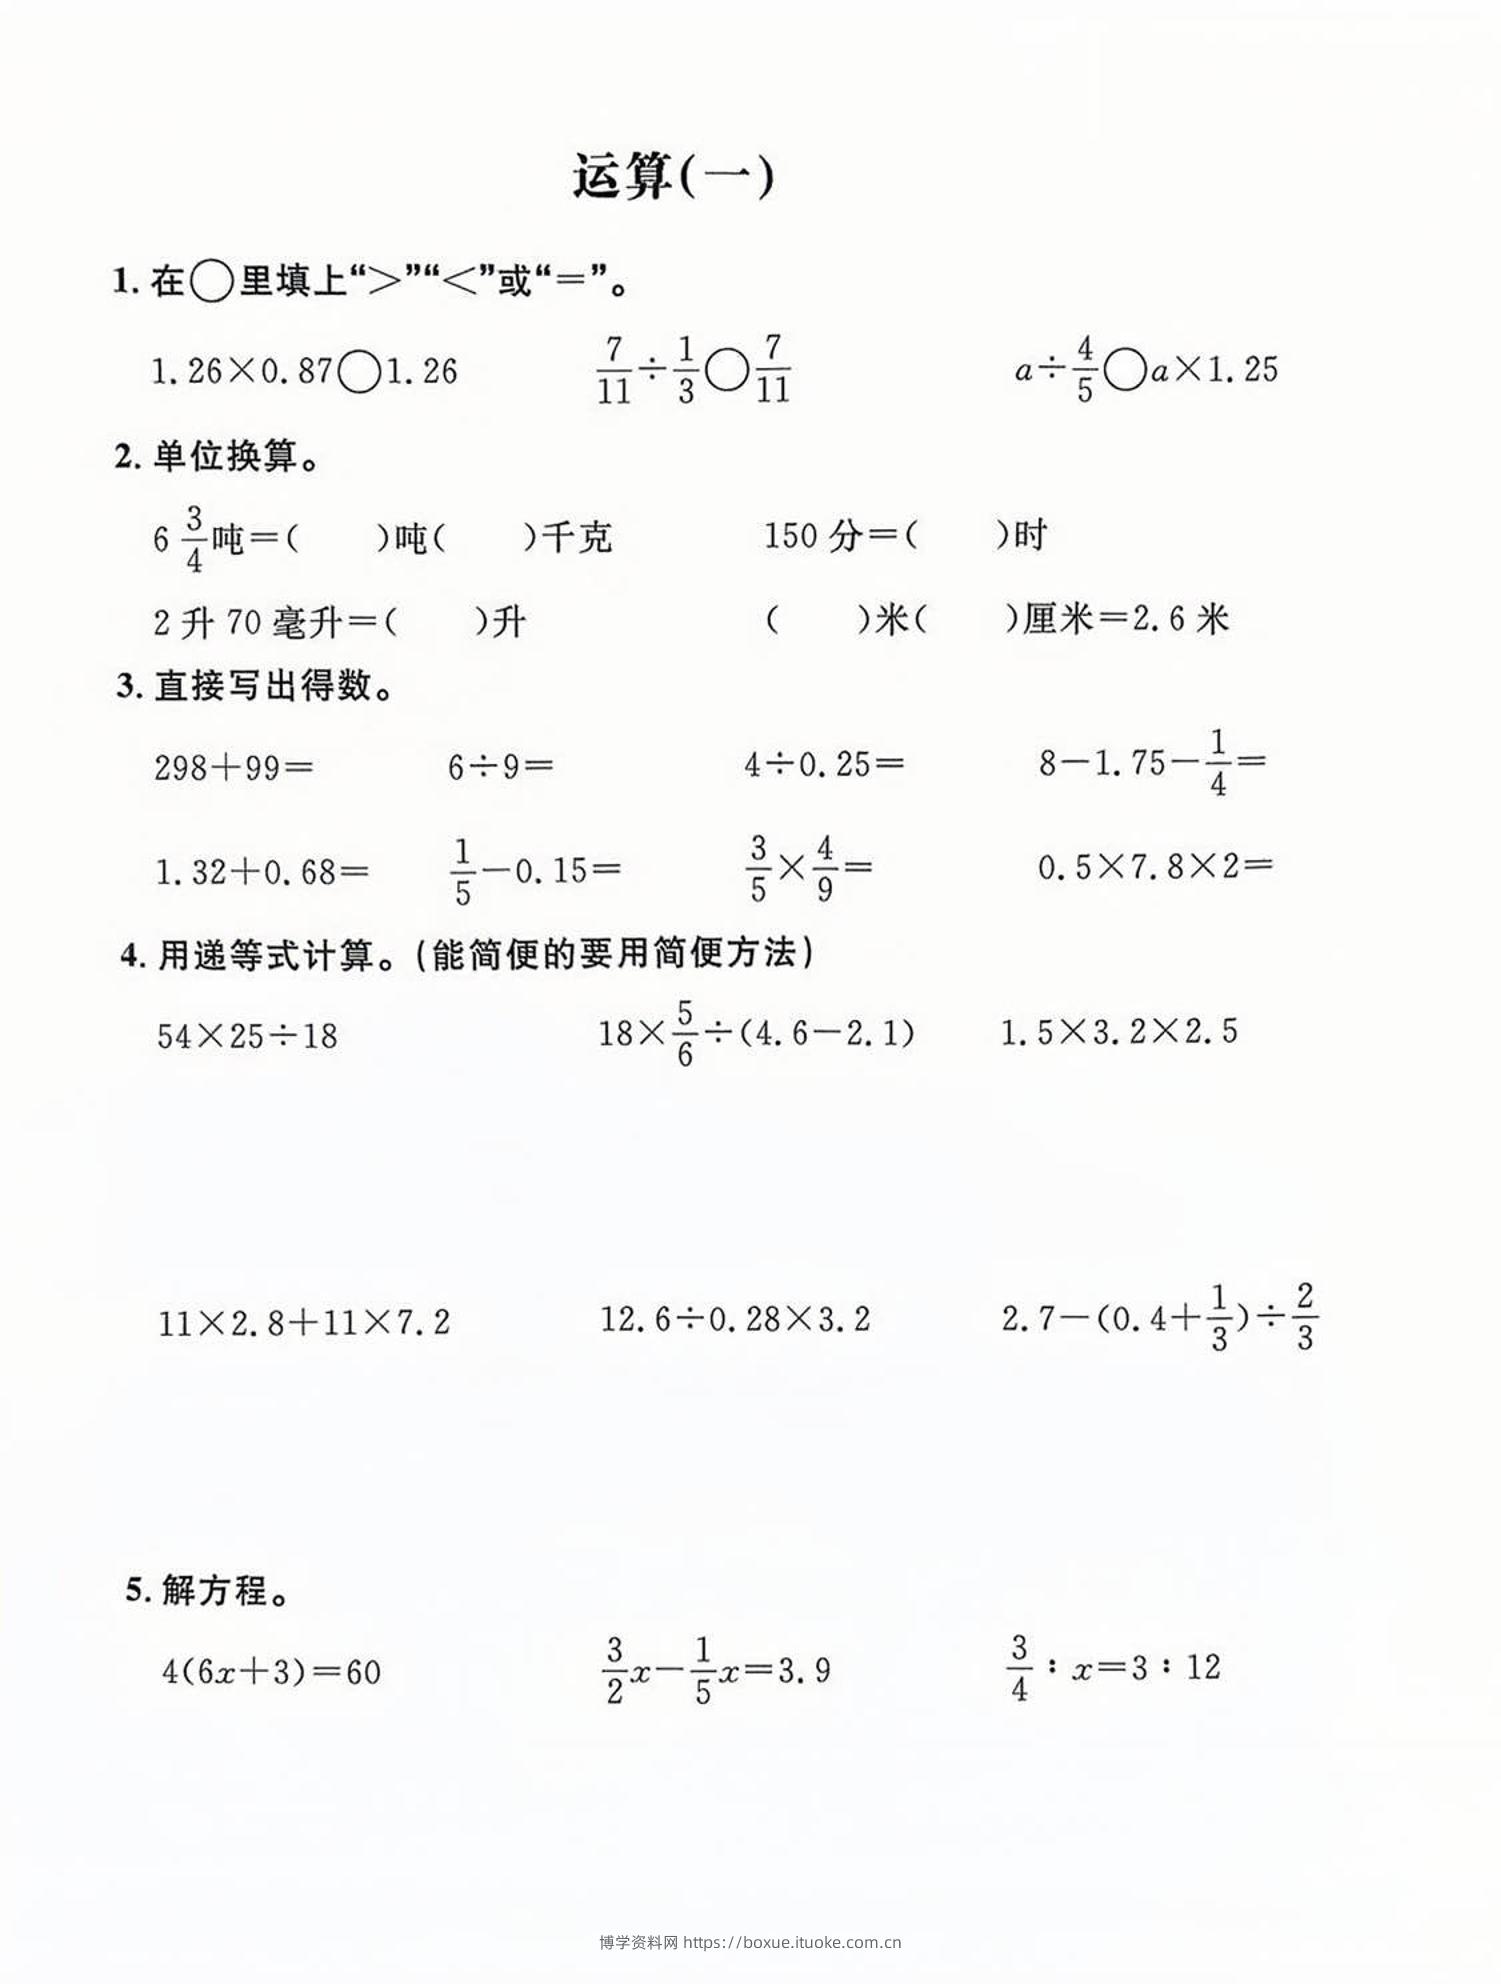 运算(一)
1. 在○里填上“>”“<”或“=”。
1.26×0.87○1.26  7/11÷1/3○7/11  a÷4/5○a×1.25
2. 单位换算。
6 3/4吨=(  )吨(  )千克  150 分=(  )时
2 升 70 毫升=(  )升  (  )米(  )厘米=2.6 米
3. 直接写出得数。
298+99=  6÷9=  4÷0.25=  8-1.75-1/4=
1.32+0.68=  1/5-0.15=  3/5×4/9=  0.5×7.8×2=
4. 用递等式计算。(能简便的要用简便方法)
54×25÷18  18×5/6÷(4.6-2.1)  1.5×3.2×2.5
11×2.8+11×7.2  12.6÷0.28×3.2  2.7-(0.4+1/3)÷2/3
5. 解方程。
4(6x+3)=60  3/2x-1/5x=3.9  3/4:x=3:12
博学资料网 https://boxue.ituoke.com.cn